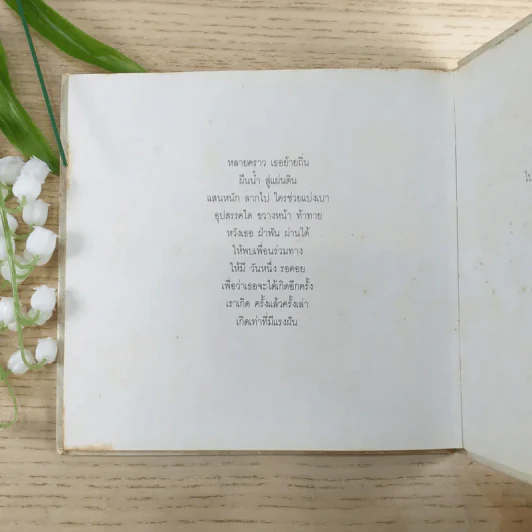 หลายคราว เธอย้ายถิ่น
ผืนน้ำ สู่แผ่นดิน
แสนหนัก ลากไป ใครช่วยแบ่งเบา
อุปสรรคใด ขวางหน้า ท้าทาย
หวังเธอ ฝ่าฟัน ผ่านได้
ให้พบเพื่อนร่วมทาง
ให้มี วันหนึ่ง รอคอย
เพื่อว่าเธอจะได้เกิดอีกครั้ง
เราเกิด ครั้งแล้วครั้งเล่า
เกิดเท่าที่มีแรงฝัน